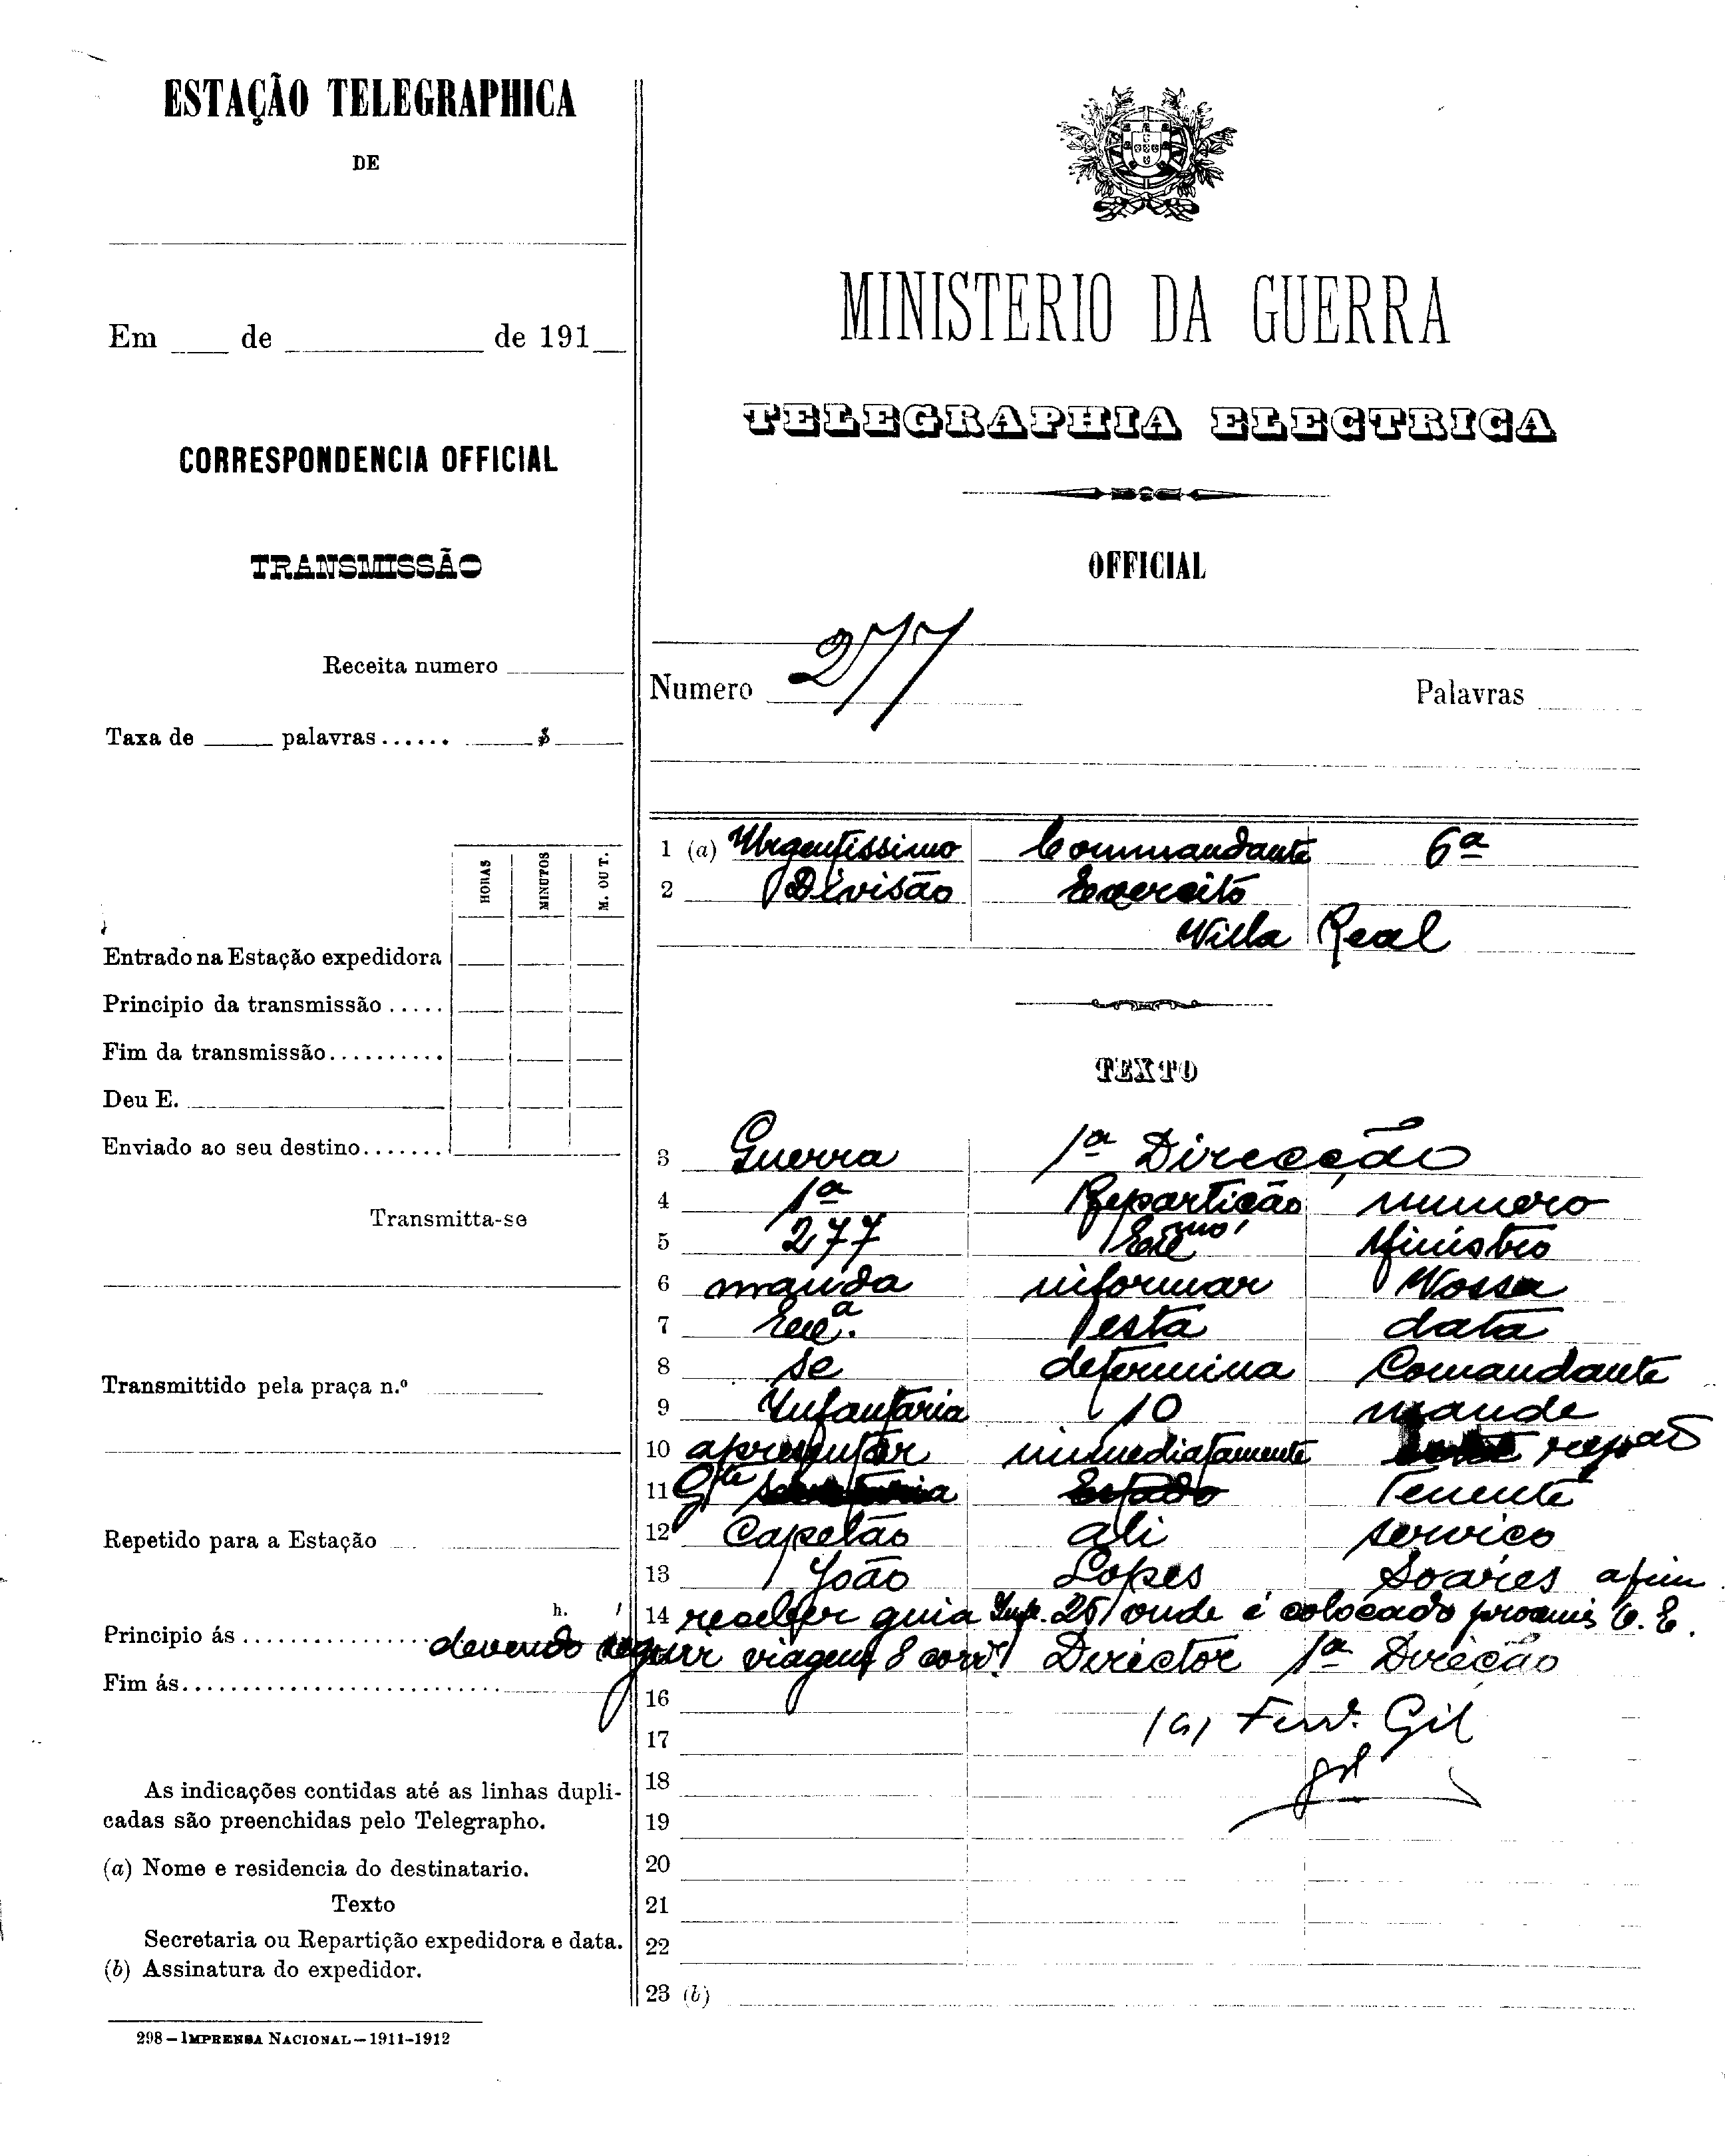 ESTAÇÃO TELEGRAPHICA
DE
Em ____ de ____________ de 191__
CORRESPONDENCIA OFFICIAL
TRANSMISSÃO
Receita numero
Taxa de ____ palavras...... ____$____
HORAS
MINUTOS
M. OU T.
Entrado na Estação expedidora
Principio da transmissão .....
Fim da transmissão..........
Deu E.
Enviado ao seu destino.......
Transmitta-se
Transmittido pela praça n.º
Repetido para a Estação
h.
Principio ás ................
Fim ás............................
As indicações contidas até as linhas dupli-
cadas são preenchidas pelo Telegrapho.
(a) Nome e residencia do destinatario.
Texto
Secretaria ou Repartição expedidora e data.
(b) Assinatura do expedidor.
298 – IMPRENSA NACIONAL – 1911-1912
MINISTERIO DA GUERRA
TELEGRAPHIA ELECTRICA
OFFICIAL
Numero 277 Palavras
1 (a) Urgentissimo Commandante 6ª
2 Divisão Exercito
Villa Real
TEXTO
3 Guerra 1ª Direcção
4 1ª Repartição numero
5 277 Exmo Ministro
6 manda informar Vossa
7 Exª. esta data
8 se determina Comandante
9 Infantaria 10 mande
10 apresentar immediatamente repão
11 Gte Estado Tenente
12 Capelão ali serviço
13 João Lopes Soares afim
14 receber guia Inf. 25 onde é colocado O. E.
devendo seguir viagem 8 corrte Director 1ª Direcção
16
17 (a) Ferr. Gil
18
19
20
21
22
23 (b)